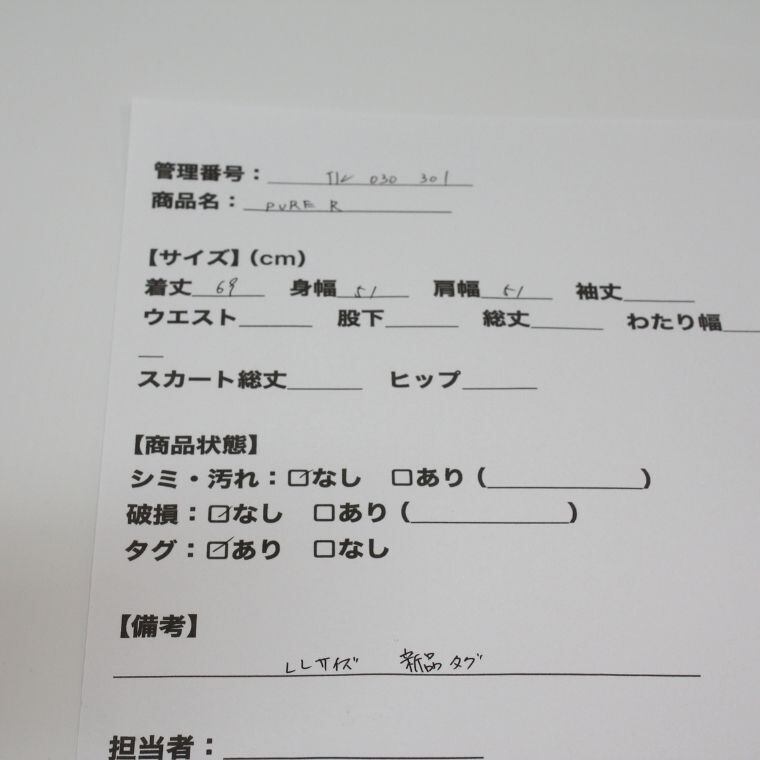 管理番号： TK 030 301
商品名： PURE R
【サイズ】(cm)
着丈 69 身幅 51 肩幅 51 袖丈
ウエスト 股下 総丈 わたり幅
スカート総丈 ヒップ
【商品状態】
シミ・汚れ：☑なし □あり（ ）
破損：☑なし □あり（ ）
タグ：☑あり □なし
【備考】
LLサイズ 新品タグ
担当者：